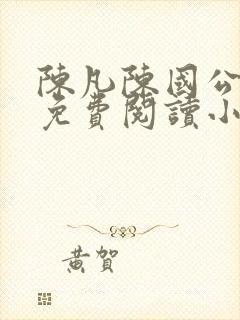 陳凡陳國公
免費閱讀小
黃賀